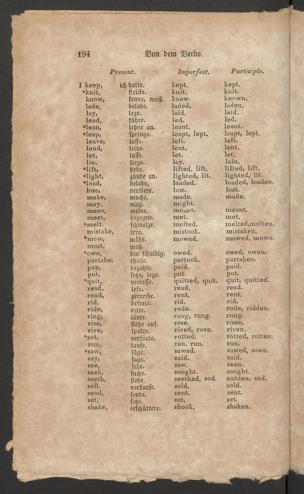 194 Von dem Verbo.
Present. Imperfect. Participle.
I keep, ich halte. kept. kept.
*knit, stricke. knit. knit.
know, kenne, weiß. knew. known.
lade, belade. laded. laden.
lay, lege. laid. laid.
lead, führe. led. led.
*lean, lehne an. leant. leant.
*leap, springe. leapt, lept. leapt, lept.
leave, lasse. left. left.
lend, leihe. lent. lent.
let, lasse. let. let.
lie, liege. lay. lain.
*lift, hebe. lifted, lift. lifted, lift.
*light, zünde an. lighted, lit. lighted, lit.
*load, belade. loaded. loaded, loaden.
lose, verliere. lost. lost.
make, mache. made. made.
may, mag. might.
mean, meine. meant. meant.
meet, begegne. met. met.
*melt, schmelze. melted. melted, molten.
mistake, irre. mistook. mistaken.
*mow, mähe. mowed. mowed, mown.
must, muß.
*owe, bin schuldig. owed. owed, owen.
partake, theile. partook. partaken.
pay, bezahle. paid. paid.
put, setze, lege. put. put.
*quit, verlasse. quitted, quit. quit, quitted.
read, lese. read. read.
rend, zerreiße. rent. rent.
rid, befreie. rid. rid.
ride, reite. rode. rode, ridden.
ring, läute. rang, rung. rung.
rise, stehe auf. rose. risen.
rive, spalte. rived, rove. riven.
*rot, verfaule. rotted. rotted, rotten.
run, laufe. ran, run. run.
*saw, säge. sawed. sawed, sawn.
say, sage. said. said.
see, sehe. saw. seen.
seek, suche. sought. sought.
seeth, siede. seethed, sod. sodden, sod.
sell, verkaufe. sold. sold.
send, sende. sent. sent.
set, setze. set. set.
shake, erschüttere. shook. shaken.